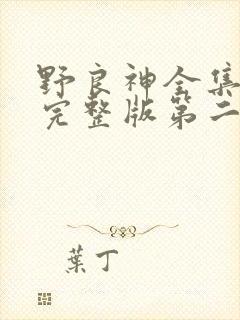 野良神全集
完整版第二
葉丁